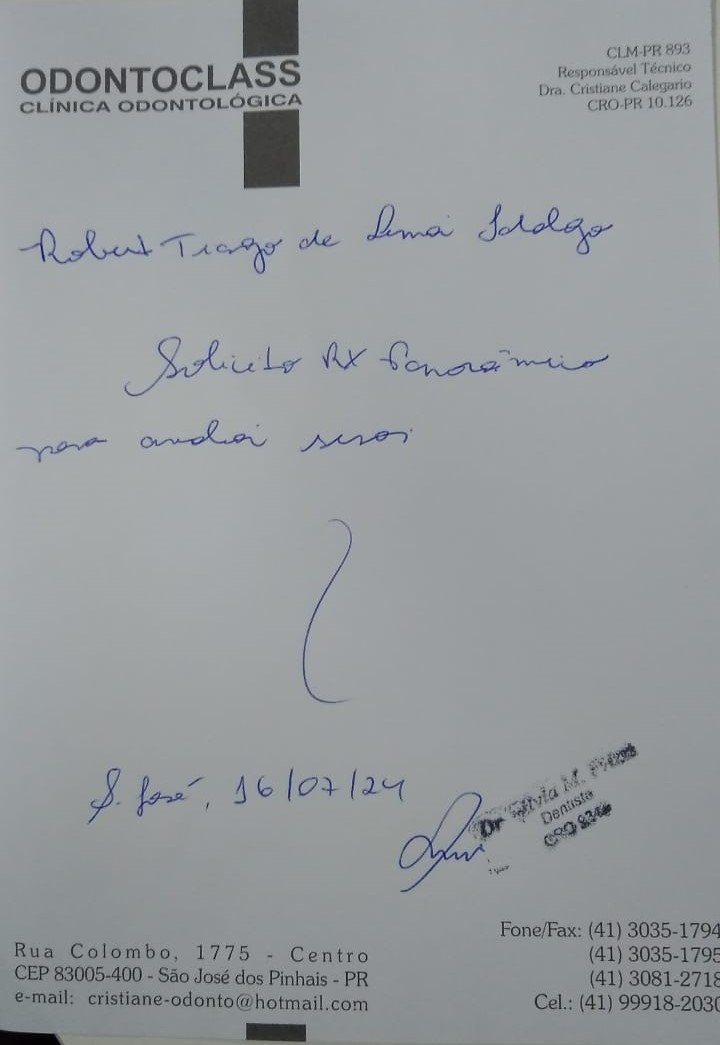 ODONTOCLASS
CLÍNICA ODONTOLÓGICA
CLM-PR 893
Responsável Técnico
Dra. Cristiane Calegario
CRO-PR 10.126
Robert Tiago de Lima
Solicito RX Panorâmico
para
S. José, 16/07/24
Dr Silvia M.
Dentista
CRO
Rua Colombo, 1775 - Centro
CEP 83005-400 - São José dos Pinhais - PR
e-mail: cristiane-odonto@hotmail.com
Fone/Fax: (41) 3035-1794
(41) 3035-1795
(41) 3081-2718
Cel.: (41) 99918-2030